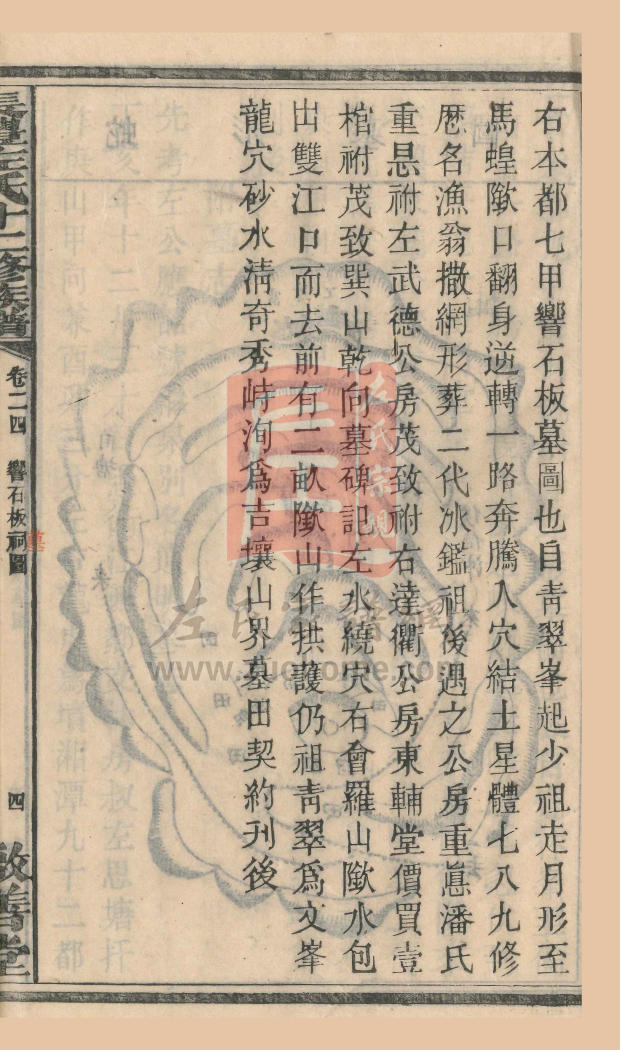 右本都七甲響石板墓圖也自靑翠峯起少祖走月形至
馬蝗㘰口翻身逆轉一路奔騰入穴結土星體七八九修
厯名漁翁撒網形葬二代冰鑑祖後遇之公房重嵬潘氏
重㫟祔左武德公房茂致祔右達衢公房東輔堂價買壹
棺祔茂致巽山乾向墓碑記左水繞穴右會羅山㘰水包
出雙江口而去前有二畝㘰山作拱護仍祖靑翠爲文峯
龍穴砂水淸奇秀峙洵爲吉壤山界墓田契約刊後
左氏十二修族譜
卷二四
響石板祠圖
墓
四
敦善堂
左氏宗親
www.zuohome.com